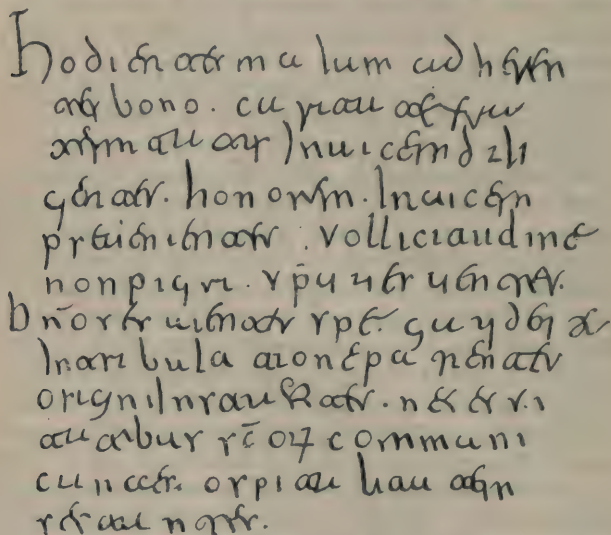 hodientes malum adheren
tes bono. caritate fra
ternitatis Inuicem dili
gentes. honorem. Inuicem
preuenientes. sollicitudine
non pigri. sp̄u feruentes.
dn̄o seruientes spe. gaudentes
In tribulatione patientes
orationi Instantes. necessi
tatibus sc̄oꝝ communi
cantes. ospitalitatem
sectantes.